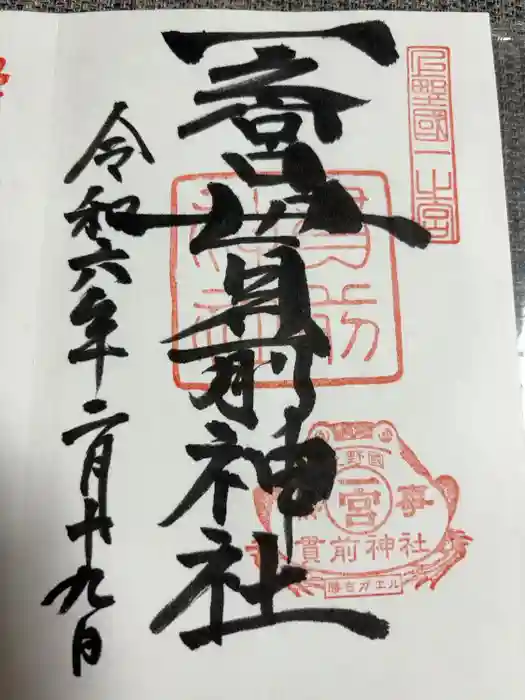 上野國一之宮
一之宮貫前神社
貫前神社
令和六年二月十九日
野國
一宮
無事
貫前神社
勝古ガエル